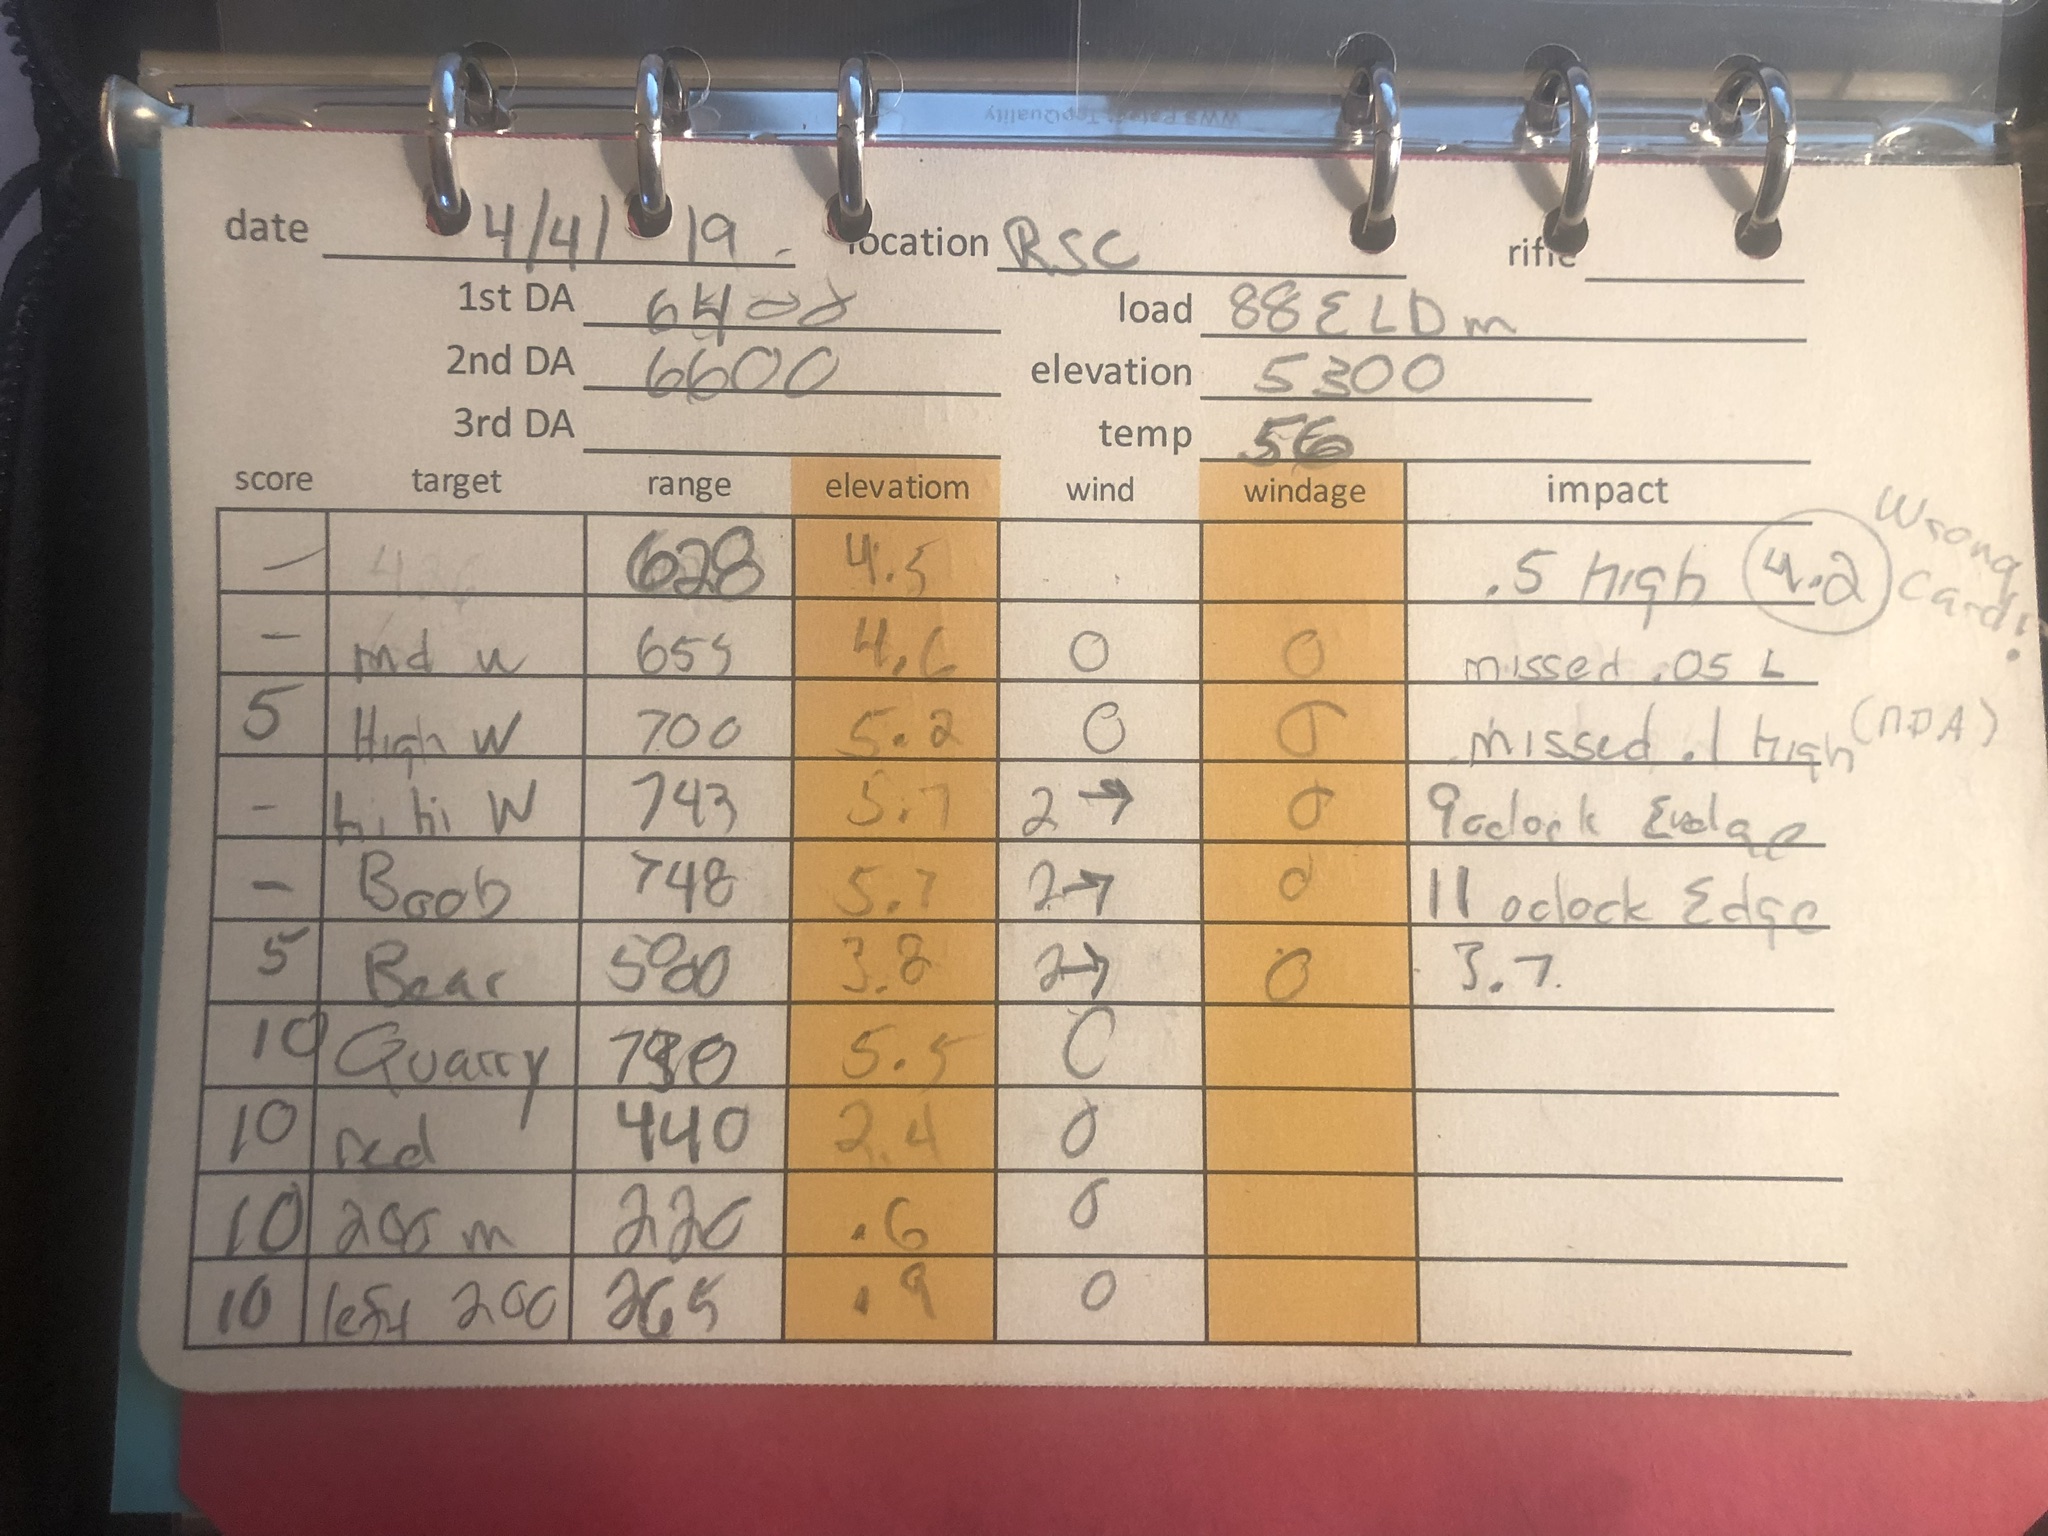 date 4/4/19 location RSC rifle
1st DA 6400 load 88 ELD m
2nd DA 6600 elevation 5300
3rd DA temp 56
score target range elevatiom wind windage impact
– 628 4.5 .5 high 4.2 Wrong Card!
– md w 655 4.6 0 0 missed .05 L
5 High W 700 5.2 0 0 missed .1 high (nDA)
– hi hi W 743 5.7 2 → 0 9 oclock
– Boob 748 5.7 2 → 0 11 oclock Edge
5 Bear 580 3.8 2 → 0 3.7
10 Quarry 5.5 0
10 red 440 2.4 0
10 200 m 220 .6 0
10 left 200 265 .9 0